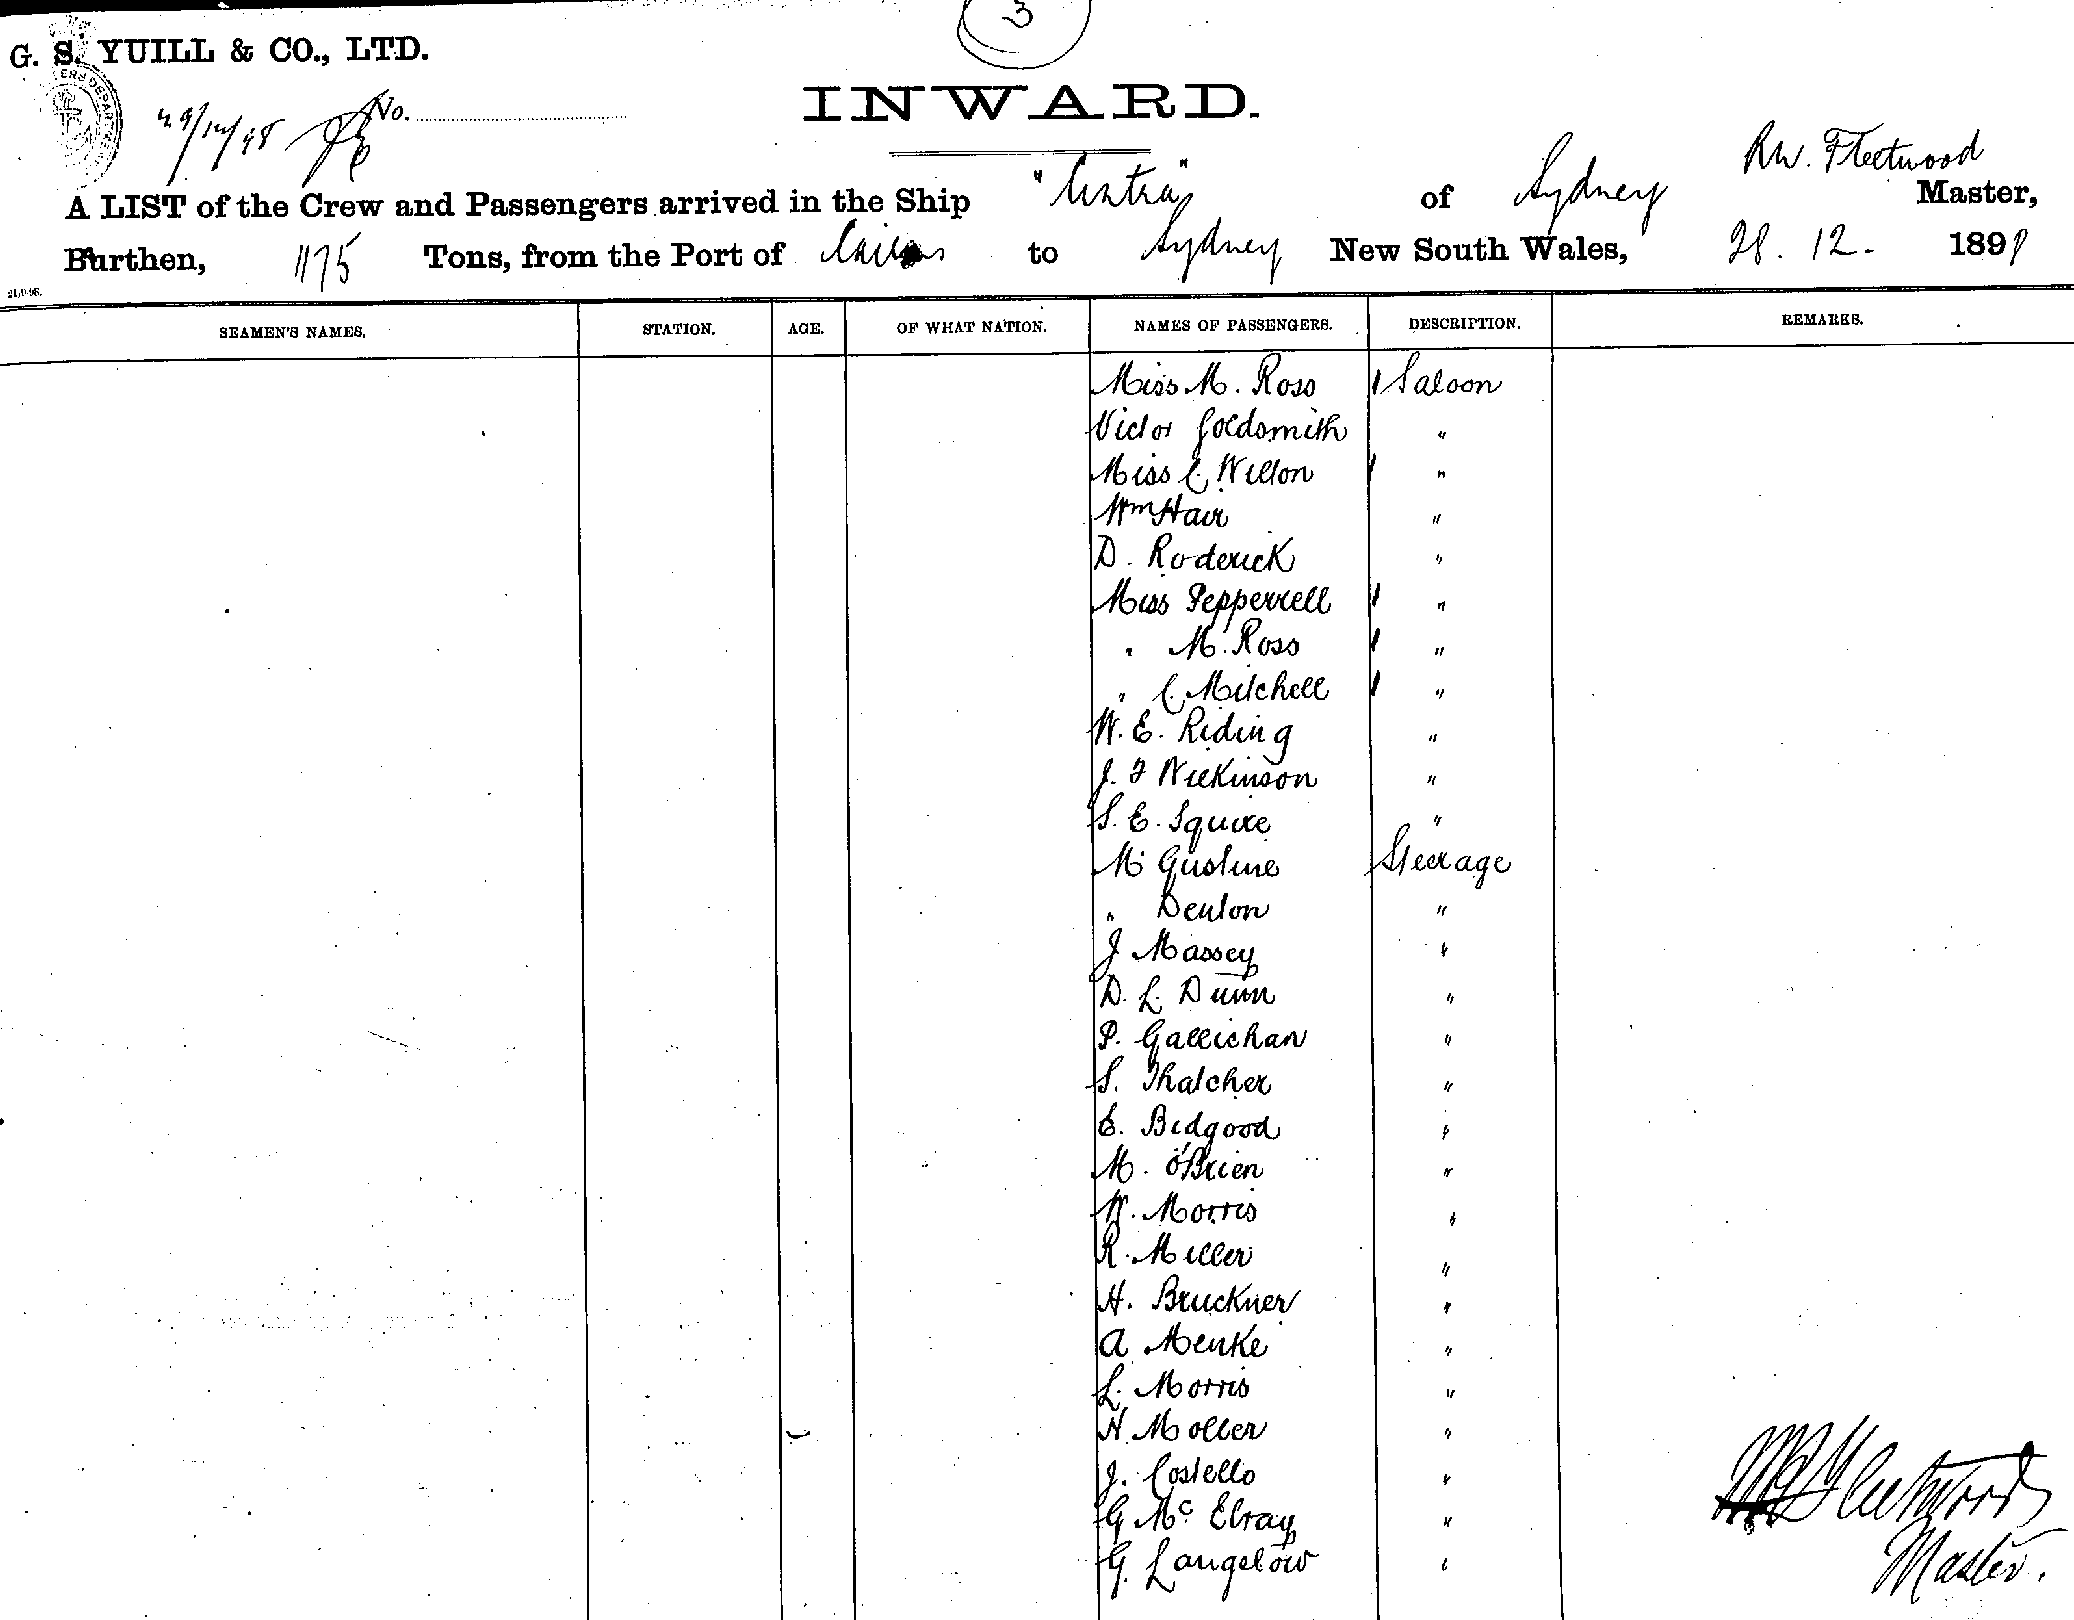 3
G. S. YUILL & CO., LTD.
No.
INWARD.
29/12/98
RW. Fleetwood
A LIST of the Crew and Passengers arrived in the Ship "Cintra" of Sydney Master,
Burthen, 1175 Tons, from the Port of Cairns to Sydney New South Wales, 28. 12. 1898
21/9/96.
SEAMEN'S NAMES. STATION. AGE. OF WHAT NATION. NAMES OF PASSENGERS. DESCRIPTION. REMARKS.
Miss M. Ross 1 Saloon
Victor Goldsmith "
Miss C. Wilton 1 "
Wm Hair "
D. Roderick "
Miss Pepperrell 1 "
" M. Ross 1 "
" C. Mitchell 1 "
W. E. Riding "
J. F Wilkinson "
S. E. Squire "
Mr Gustine Steerage
" Denton "
J Massey "
D. L. Dunn "
P. Gallichan "
S. Thatcher "
E. Bidgood "
M. O'Brien "
W. Morris "
R. Miller "
H. Bruckner "
A Menke "
L. Morris "
H. Moller "
J. Costello "
G Mc Elray "
G. Langelow "
Fleetwood
Master.